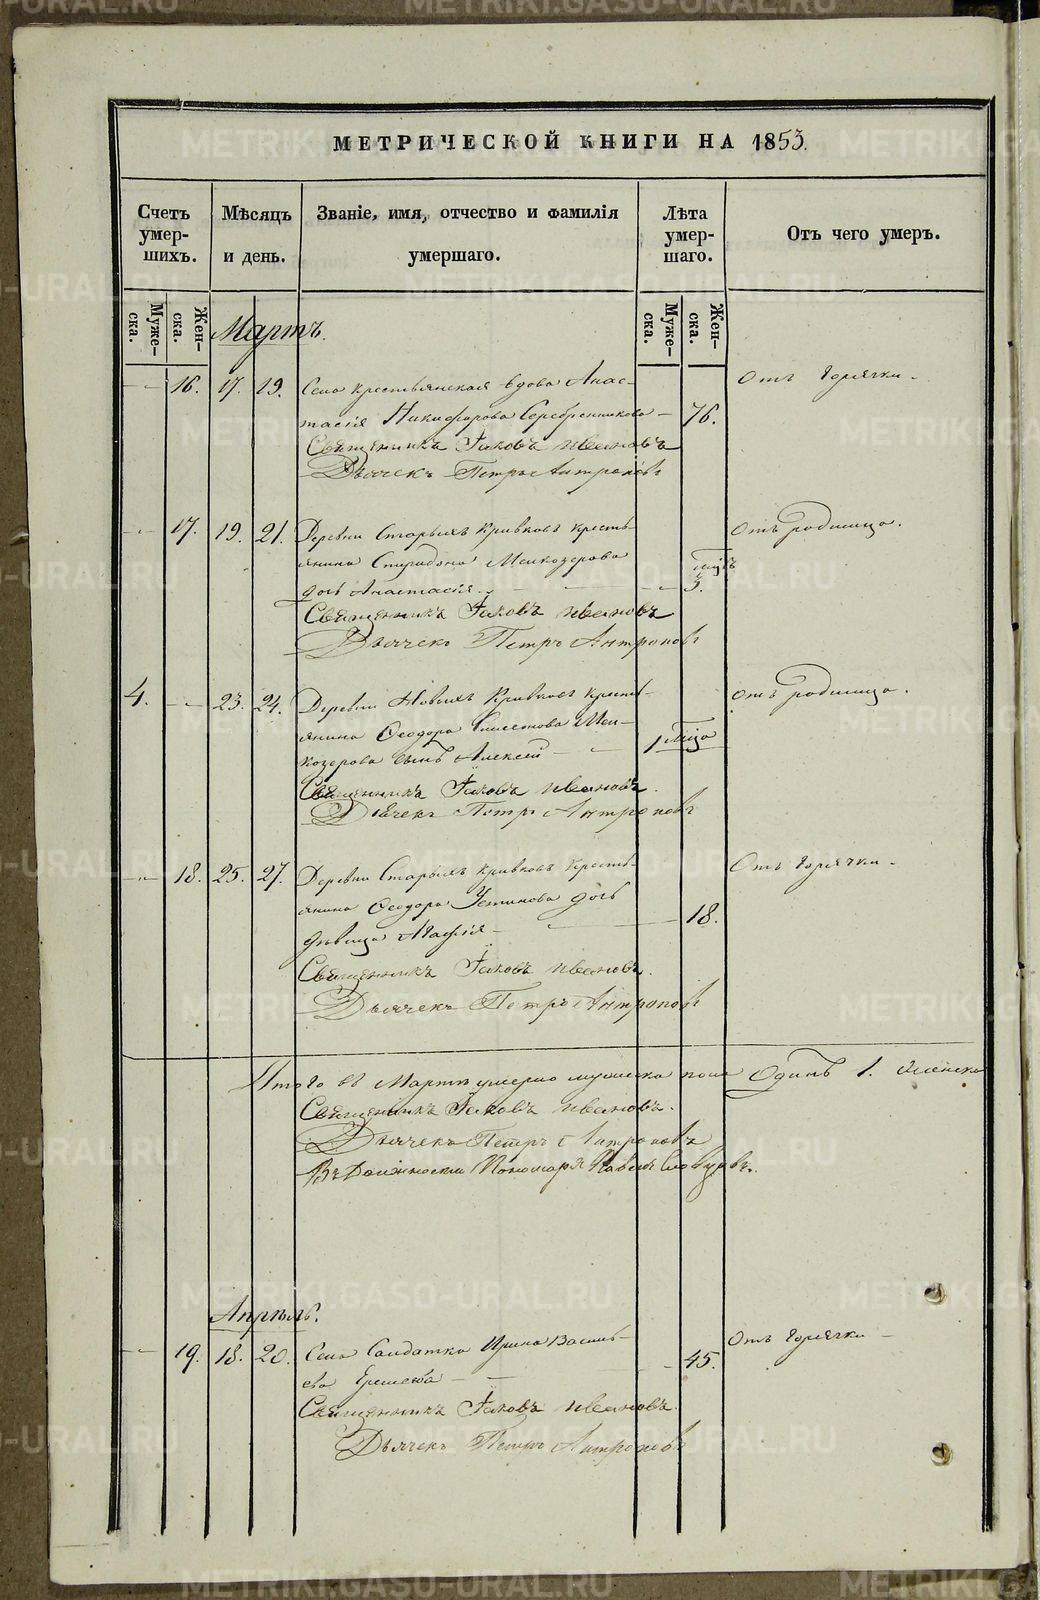 МЕТРИЧЕСКОЙ КНИГИ НА 1853.
Счетъ умер-шихъ. Мѣсяцъ и день. Званіе, имя, отчество и фамилія умершаго. Лѣта умер-шаго. Отъ чего умеръ.
Муже-ска. Жен-ска. Муже-ска. Жен-ска.
Мартъ.
16. 17. 19. Села крестьянская вдова Анас- Отъ горячки.
тасія Никифорова Серебренникова 76.
Священникъ Іаковъ Ивановъ
Дьячекъ Петръ Антроповъ
17. 19. 21. Деревни Старыхъ Кривковъ кресть- Отъ родимца.
янина Спиридона Мелкозерова
дочь Анастасія 3.
Священникъ Іаковъ Ивановъ
Дьячекъ Петръ Антроповъ
4. 23. 24. Деревни Новыхъ Кривковъ кресть- отъ родимца.
янина Ѳеодора Мел-
козерова сынъ Алексій 1 мѣсяца
Священникъ Іаковъ Ивановъ.
Дьячекъ Петръ Антроповъ
18. 25. 27. Деревни Старыхъ Кривковъ кресть- Отъ горячки.
янина Ѳеодора Устинова дочь
дѣвица 18.
Священникъ Іаковъ Ивановъ.
Дьячекъ Петръ Антроповъ
Итого въ Мартѣ умерло мужеска пола Одинъ 1. женска
Священникъ Іаковъ Ивановъ.
Дьячекъ Петръ Антроповъ
Въ Должности Пономаря Павелъ
Апрѣль.
19. 18. 20. Села Солдатка Ирина Василь- Отъ горячки
ева 45.
Священникъ Іаковъ Ивановъ.
Дьячекъ Петръ Антроповъ
METRIKI.GASO-URAL.RU